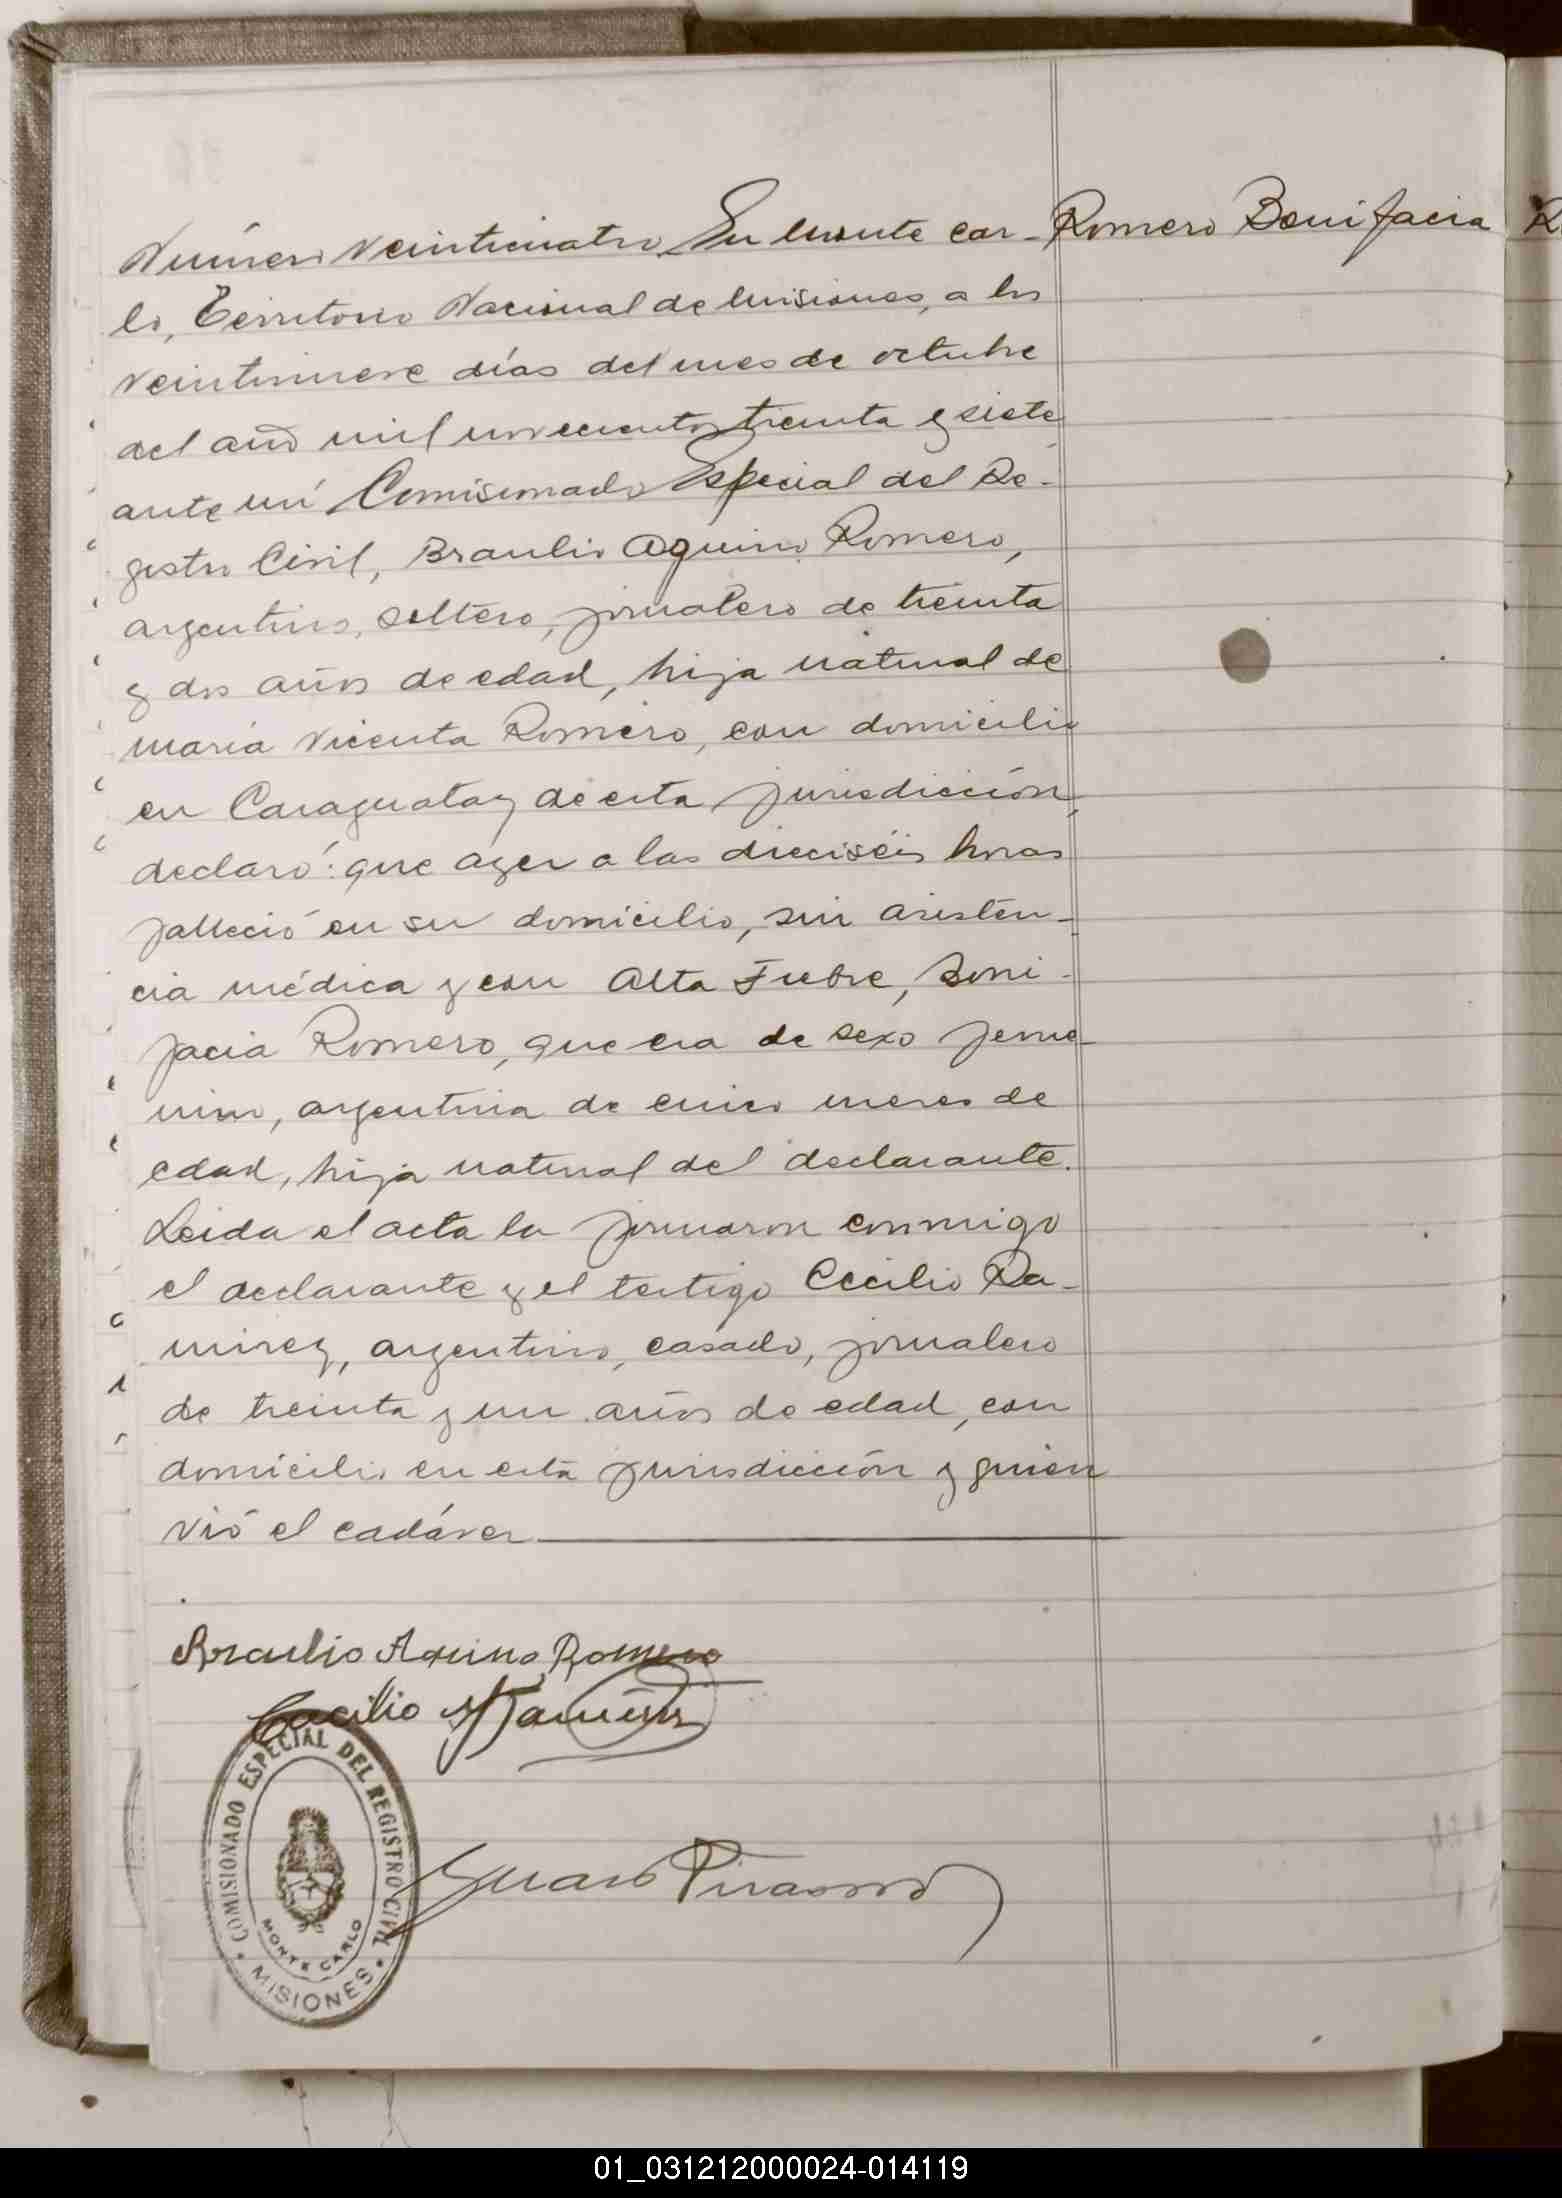 Número veinticuatro En Monte Car-
Romero Bonifacia
lo, Territorio Nacional de Misiones, a los
veintinueve días del mes de octubre
del año mil novecientos treinta y siete
ante mí Comisionado Especial del Re-
gistro Civil, Braulio Aquino Romero,
argentino, soltero, jornalero de treinta
y dos años de edad, hija natural de
María Vicenta Romero, con domicilio
en Caraguatay de esta jurisdicción,
declaró: que ayer a las dieciséis horas
falleció en su domicilio, sin asisten-
cia médica y con Alta Fiebre, Boni-
facia Romero, que era de sexo feme-
nino, argentina de cinco meses de
edad, hija natural del declarante.
Leida el acta la firmaron conmigo
el declarante y el testigo Cecilio Ra-
mirez, argentino, casado, jornalero
de treinta y un años de edad, con
domicilio en esta jurisdicción y quien
vió el cadáver
Braulio Aquino Romero
Cecilio Ramírez
COMISIONADO ESPECIAL DEL REGISTRO CIVIL
MONTE CARLO
• MISIONES •
01_031212000024-014119